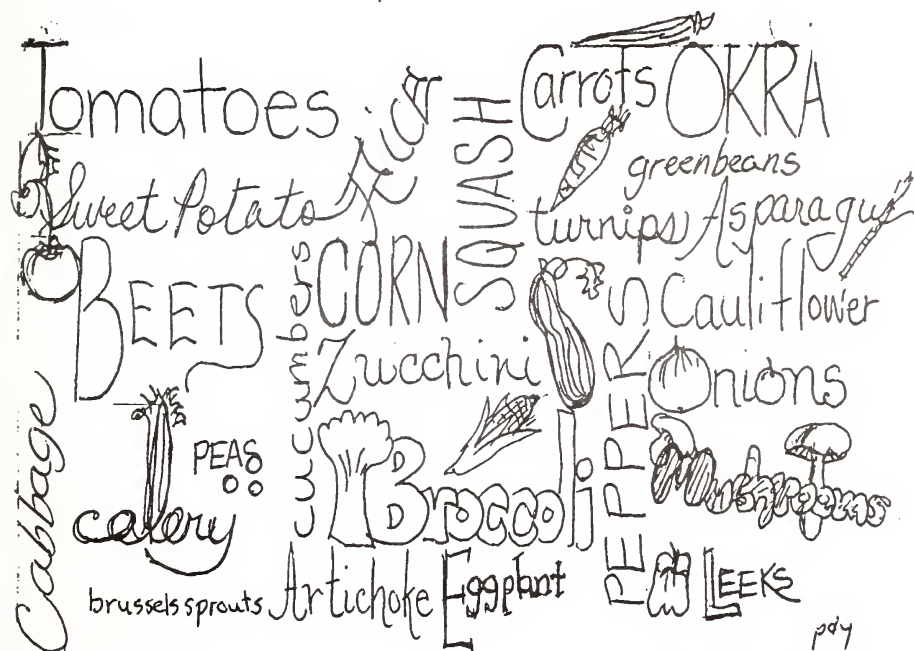 Tomatoes
Carrots
OKRA
SQUASH
greenbeans
Sweet Potato
turnips
Asparagus
BEETS
cucumbers
CORN
PEPPERS
Cauliflower
Zucchini
Onions
Cabbage
PEAS
celery
Broccoli
Mushrooms
brussels sprouts
Artichoke
Eggplant
LEEKS
pdy